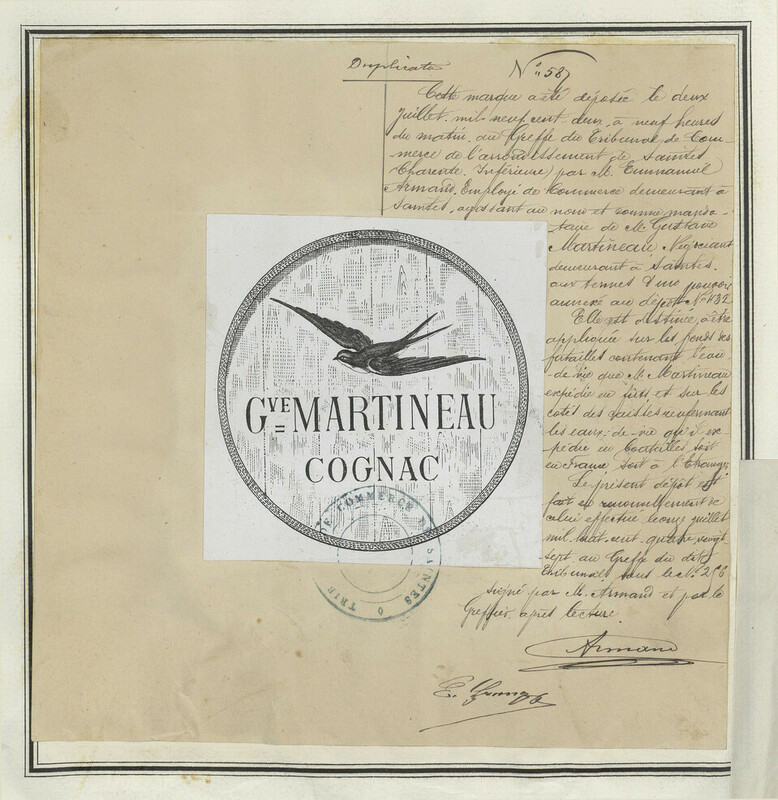 Duplicata
N° 587
Cette marque a été déposée le deux
Juillet mil neuf cent deux, à neuf heures
du matin, au Greffe du Tribunal de Com-
merce de l'arrondissement de Saintes
Charente Inférieure) par M. Emmanuel
Armand, Employé de Commerce demeurant à
Saintes, agissant au nom et comme manda-
taire de M. Gustave
Martineau, Négociant
demeurant à Saintes,
aux termes d'un pouvoir
annexé au dépôt N° 432
Elle est destinée à être
appliquée sur les fonds des
futailles contenant l'eau-
de-vie que M. Martineau
expédie en fûts et sur les
cotés des caisses renfermant
les eaux-de-vie qu'il ex-
pédie en bouteilles soit
en France, soit à l'Etranger
Le présent dépôt est
fait en renouvellement de
celui effectué le onze juillet
mil huit cent quatre vingt
sept au Greffe du dit
Tribunal sous le N° 256
Signé par M. Armand et par le
Greffier, après lecture.
Armand
GVE MARTINEAU
COGNAC
TRIB DE COMMERCE DE SAINTES